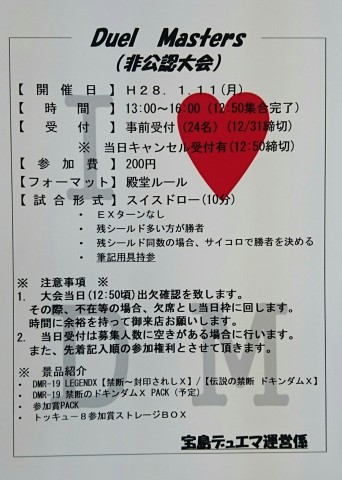 Duel Masters
(非公認大会)
【 開 催 日 】 H28.1.11(月)
【 時　　間 】 13:00~16:00 (12:50集合完了)
【 受　　付 】 事前受付(24名) (12/31締切)
※ 当日キャンセル受付有(12:50締切)
【 参 加 費 】 200円
【フォーマット】 殿堂ルール
【 試 合 形 式 】 スイスドロー(10分)
・ EXターンなし
・ 残シールド多い方が勝者
・ 残シールド同数の場合、サイコロで勝者を決める
・ 筆記用具持参
※ 注意事項 ※
1. 大会当日(12:50頃)出欠確認を致します。
その際、不在等の場合、欠席とし当日枠に回します。
時間に余裕を持って御来店お願いします。
2. 当日受付は募集人数に空きがある場合に行います。
また、先着記入順の参加権利とさせて頂きます。
※ 景品紹介
・ DMR-19 LEGENDX【禁断~封印されしX】/【伝説の禁断 ドキンダムX】
・ DMR-19 禁断のドキンダムX PACK (予定)
・ 参加賞PACK
・ トッキュー8参加賞ストレージBOX
宝島デュエマ運営係
I
DM